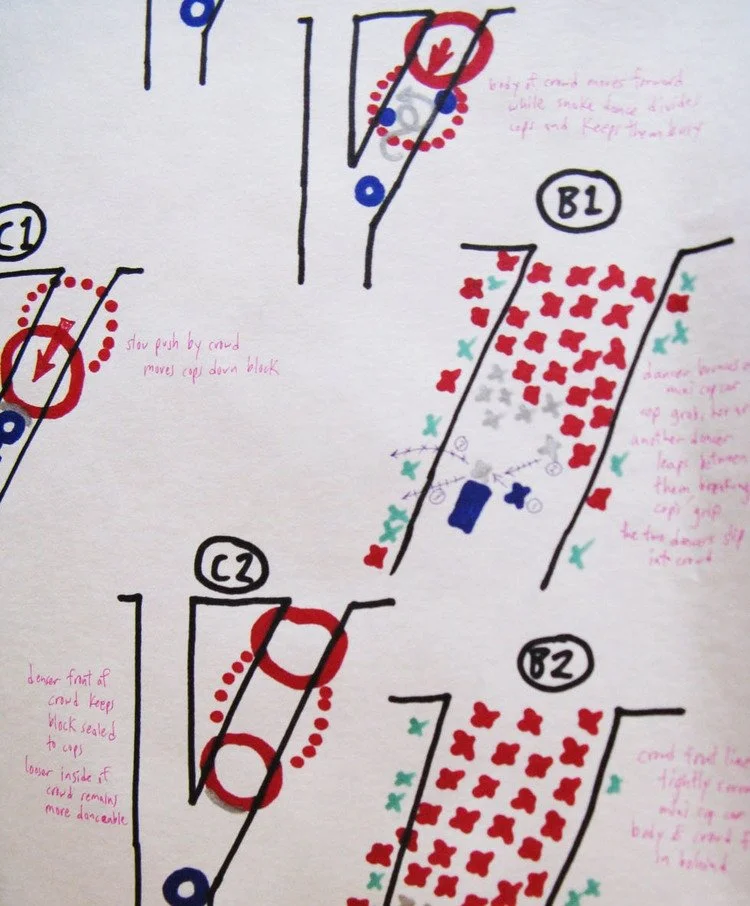 body of crowd moves forward
while snake dance divides
cops and keeps them busy
B1
C1
slow push by crowd
moves cops down block
dancer
mini copcar
cop grabs her
another dancer
leaps between
them breaking
cops' grip
the two dancers slip
into crowd
1
2
C2
denser front of
crowd keeps
block sealed
to cops
looser inside of
crowd remains
more danceable
B2
crowd front line
tightly
mini cop car
body of crowd
in behind